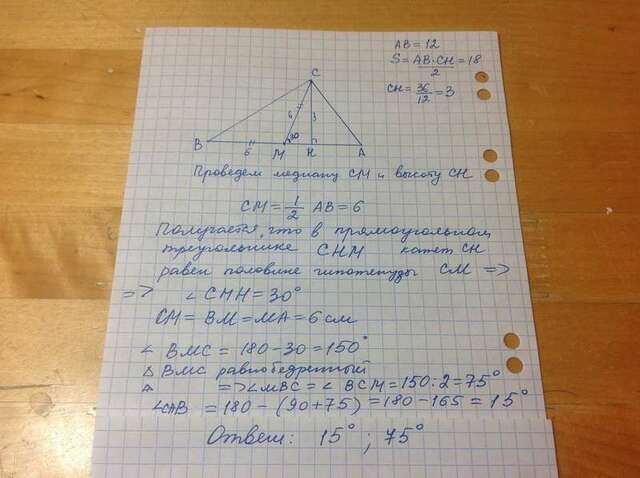 AB = 12
S = AB·CH/2 = 18
CH = 36/12 = 3
C
6
3
30
B
6
M
H
A
Проведем медиану CM и высоту CH
CM = 1/2 AB = 6
Получается, что в прямоугольном
треугольнике CHM катет CH
равен половине гипотенузы CM =>
=> ∠CMH = 30°
CM = BM = MA = 6 см
∠BMC = 180 - 30 = 150°
Δ BMC равнобедренный
=> ∠MBC = ∠BCM = 150 : 2 = 75°
∠CAB = 180 - (90 + 75) = 180 - 165 = 15°
Ответ: 15° ; 75°